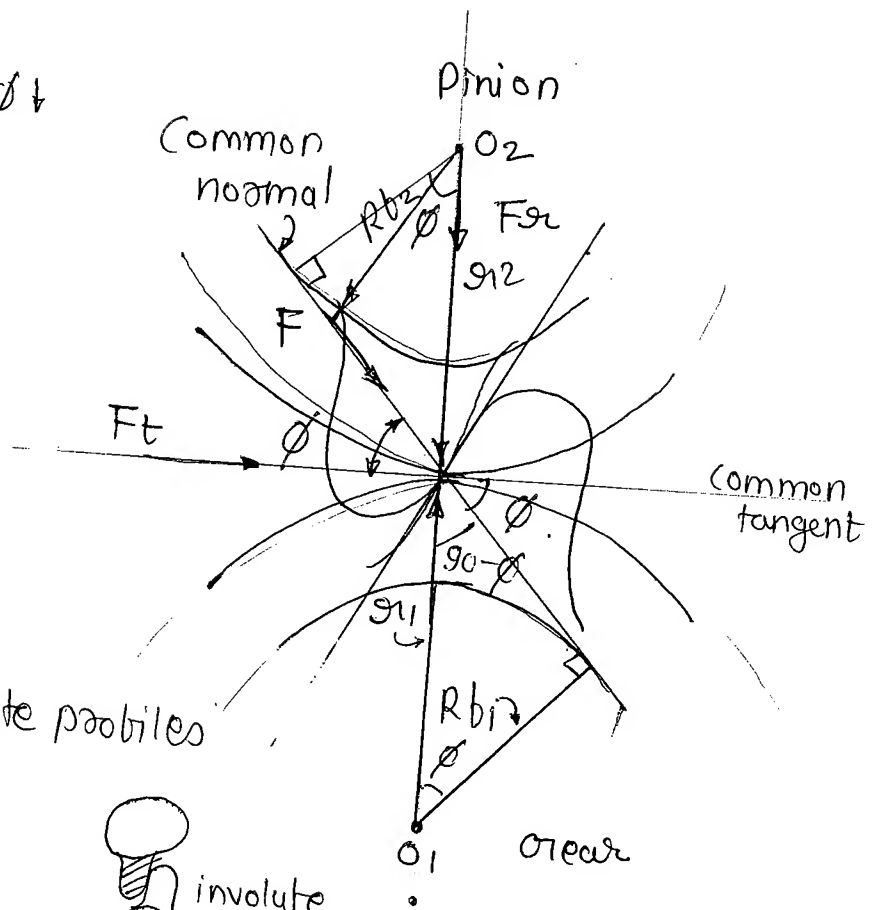 ϕ↓
Pinion
O2
Common
normal
Rb2
ϕ
Fr
r2
F
Ft
ϕ
Common
tangent
ϕ
90-ϕ
r1
te profiles
Rb1
ϕ
O1
Gear
involute